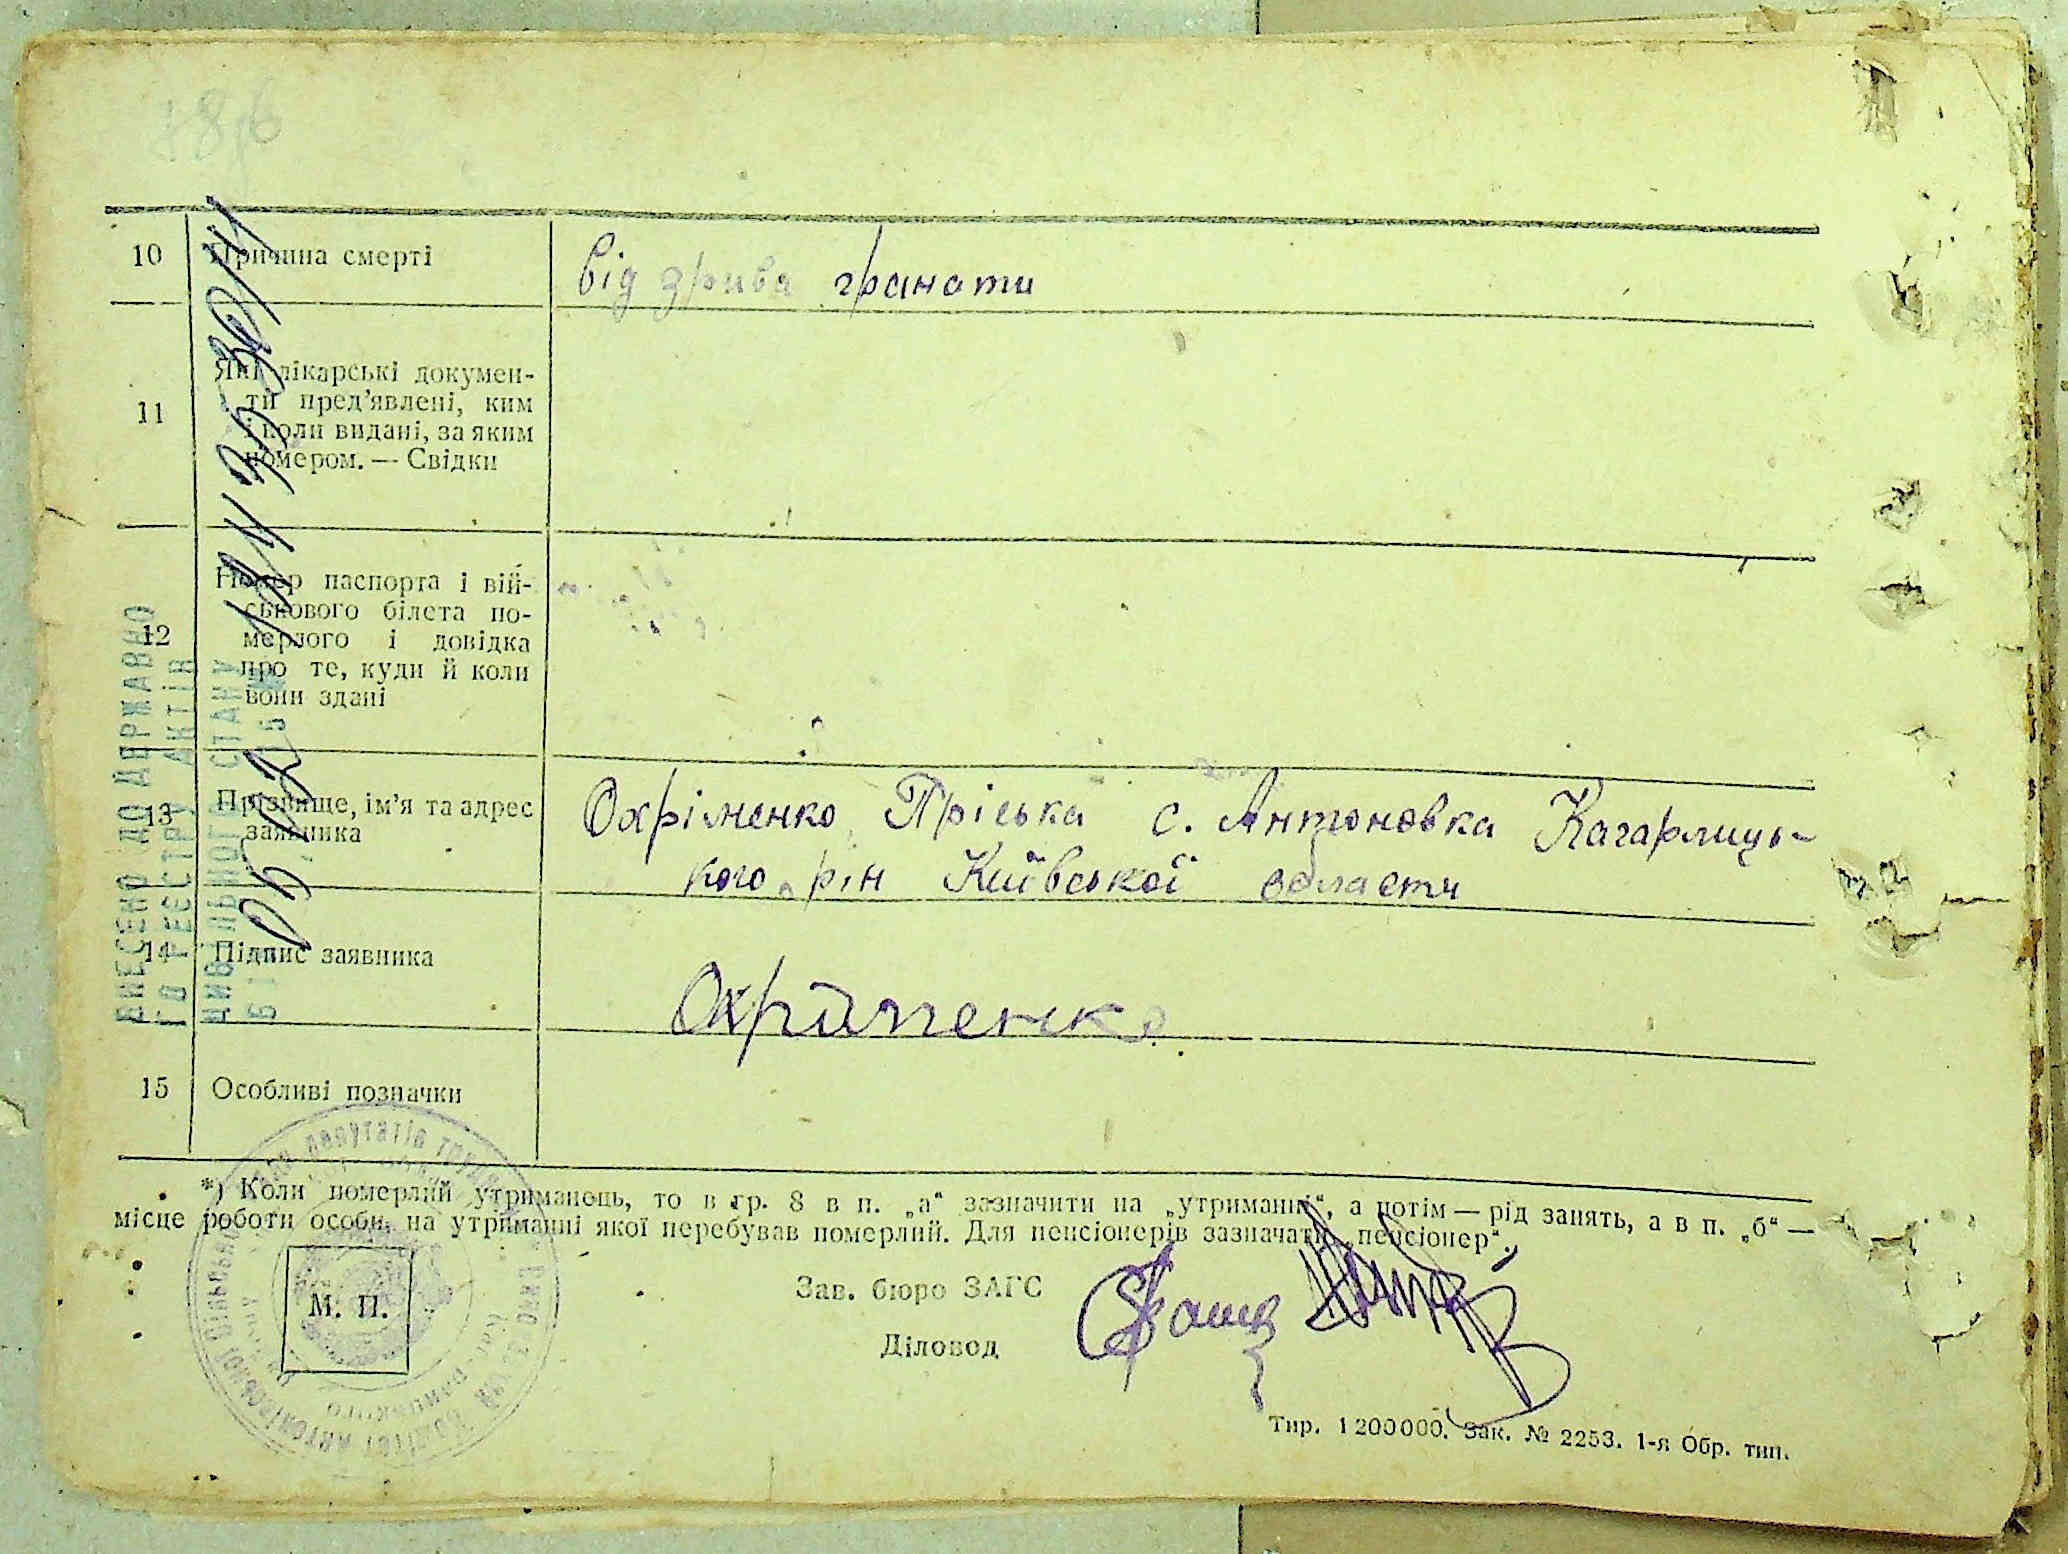 10 Причина смерті від зрива гранати
11 Які лікарські докумен-
ти пред’явлені, ким
і коли видані, за яким
номером. — Свідки
12 Номер паспорта і вій-
ськового білета по-
мерлого і довідка
про те, куди й коли
вони здані
13 Прізвище, ім’я та адрес
заявника
Охріменко Пріська с. Антоновка Кагарлиць-
кого р-н Київської области
14 Підпис заявника
Охріменко
15 Особливі позначки
*) Коли померлий утриманець, то в гр. 8 в п. „а“ зазначити на „утриманні“, а потім — рід занять, а в п. „б“ —
місце роботи особи, на утриманні якої перебував померлий. Для пенсіонерів зазначати „пенсіонер“.
М. П.
Зав. бюро ЗАГС
Діловод
Тир. 1200000. Зак. № 2253. 1-я Обр. тип.
ВНЕСЕНО ДО ДЕРЖАВНО
ГО РЕЄСТРУ АКТІВ
ЦИВІЛЬНОГО СТАНУ